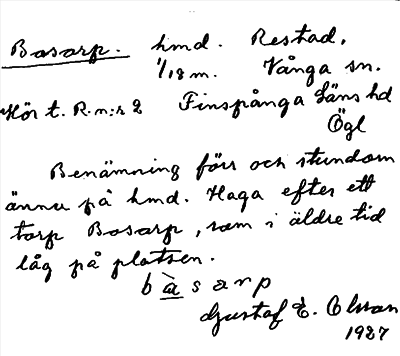 Basarp. hmd. Restad,
1/18 m. Vånga sn.
Hör t. R. n:r 2 Finspånga Läns hd
Ögl
Benämning förr och stundom
ännu på hmd. Haga efter ett
torp Basarp, som i äldre tid
låg på platsen.
bàsarp
Gustaf E. Olsson
1927